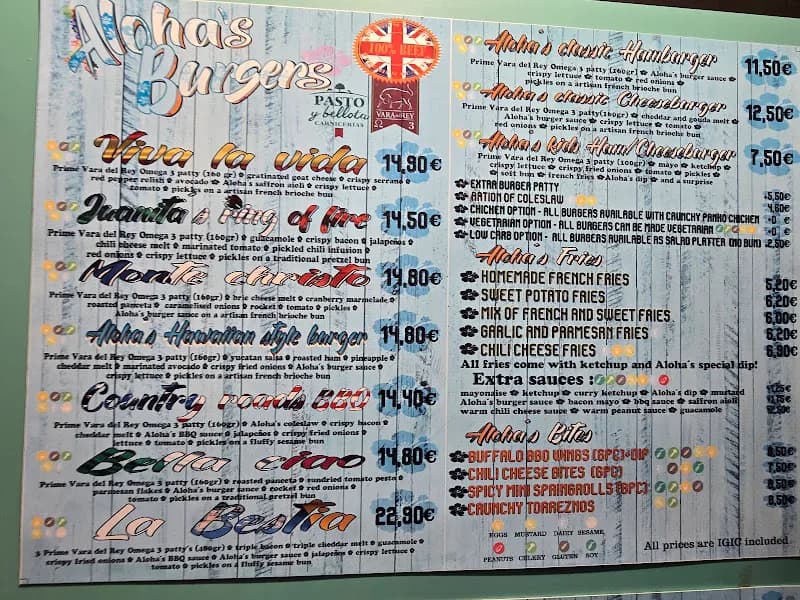 Aloha's
Burgers
100% BEEF
PASTO
y bellota
CARNICERÍAS
VARA DEL REY
Viva la vida 14,80€
Prime Vara del Rey Omega 3 patty (160 gr) gratinated goat cheese crispy serrano
red pepper relish avocado Aloha's saffron aioli crispy lettuce
tomato pickles on a artisan french brioche bun
Juanita's Ring of fire 14,50€
Prime Vara del Rey Omega 3 patty (160gr) guacamole crispy bacon jalapeños
chili cheese melt marinated tomato pickled chili infusion
red onions pickles on a traditional pretzel bun
Monte christo 14,80€
Prime Vara del Rey Omega 3 patty (160gr) brie cheese melt cranberry marmelade
roasted panceta caramelised onions rocket tomato pickles
Aloha's burger sauce on a artisan french brioche bun
Aloha's Hawaiian style burger 14,80€
Prime Vara del Rey Omega 3 patty (160gr) yucatan salsa roasted ham pineapple
cheddar melt marinated avocado crispy fried onions Aloha's burger sauce
crispy lettuce pickles on a artisan french brioche bun
Country roads BBQ 14,40€
Prime Vara del Rey Omega 3 patty (160gr) Aloha's coleslaw crispy bacon
cheddar melt Aloha's BBQ sauce jalapeños crispy fried onions
lettuce tomato pickles on a fluffy sesame bun
Bella ciao 14,80€
Prime Vara del Rey Omega 3 patty (160gr) roasted panceta sundried tomato pesto
parmesan flakes Aloha's burger sauce rocket red onions
tomato pickles on a traditional pretzel bun
La Bestia 22,90€
3 Prime Vara del Rey Omega 3 patty's (480gr) triple bacon triple cheddar melt guacamole
crispy fried onions Aloha's BBQ sauce Aloha's burger sauce jalapeños crispy lettuce
tomato pickles on a fluffy sesame bun
Aloha's classic Hamburger 11,50€
Prime Vara del Rey Omega 3 patty (160gr) Aloha's burger sauce
crispy lettuce tomato red onions
pickles on a artisan french brioche bun
Aloha's classic Cheeseburger 12,50€
Prime Vara del Rey Omega 3 patty (160gr) cheddar and gouda melt
Aloha's burger sauce crispy lettuce tomato
red onions pickles on a artisan french brioche bun
Aloha's kids Ham/Cheeseburger 7,50€
Prime Vara del Rey Omega 3 patty (100gr) mayo ketchup
crispy lettuce crispy fried onions tomato pickles
soft bun french fries Aloha's dip and a surprise
EXTRA BURGER PATTY +5,50€
RATION OF COLESLAW
CHICKEN OPTION - ALL BURGERS AVAILABLE WITH CRUNCHY PANKO CHICKEN +0 €
VEGETARIAN OPTION - ALL BURGERS CAN BE MADE VEGETARIAN +0 €
LOW CARB OPTION - ALL BURGERS AVAILABLE AS SALAD PLATTER (NO BUN) +2,50€
Aloha's Fries
HOMEMADE FRENCH FRIES 5,20€
SWEET POTATO FRIES 6,20€
MIX OF FRENCH AND SWEET FRIES 6,00€
GARLIC AND PARMESAN FRIES 6,20€
CHILI CHEESE FRIES 6,90€
All fries come with ketchup and Aloha's special dip!
Extra sauces:
mayonaise ketchup curry ketchup Aloha's dip mustard
Aloha's burger sauce bacon mayo bbq sauce saffron aioli
warm chili cheese sauce warm peanut sauce guacamole
Aloha's Bites
BUFFALO BBQ WINGS (6PC)+DIP 8,50€
CHILI CHEESE BITES (6PC) 7,50€
SPICY MINI SPRINGROLLS (6PC)
CRUNCHY TORREZNOS
EGGS MUSTARD DAIRY SESAME
PEANUTS CELERY GLUTEN SOY
All prices are IGIC included